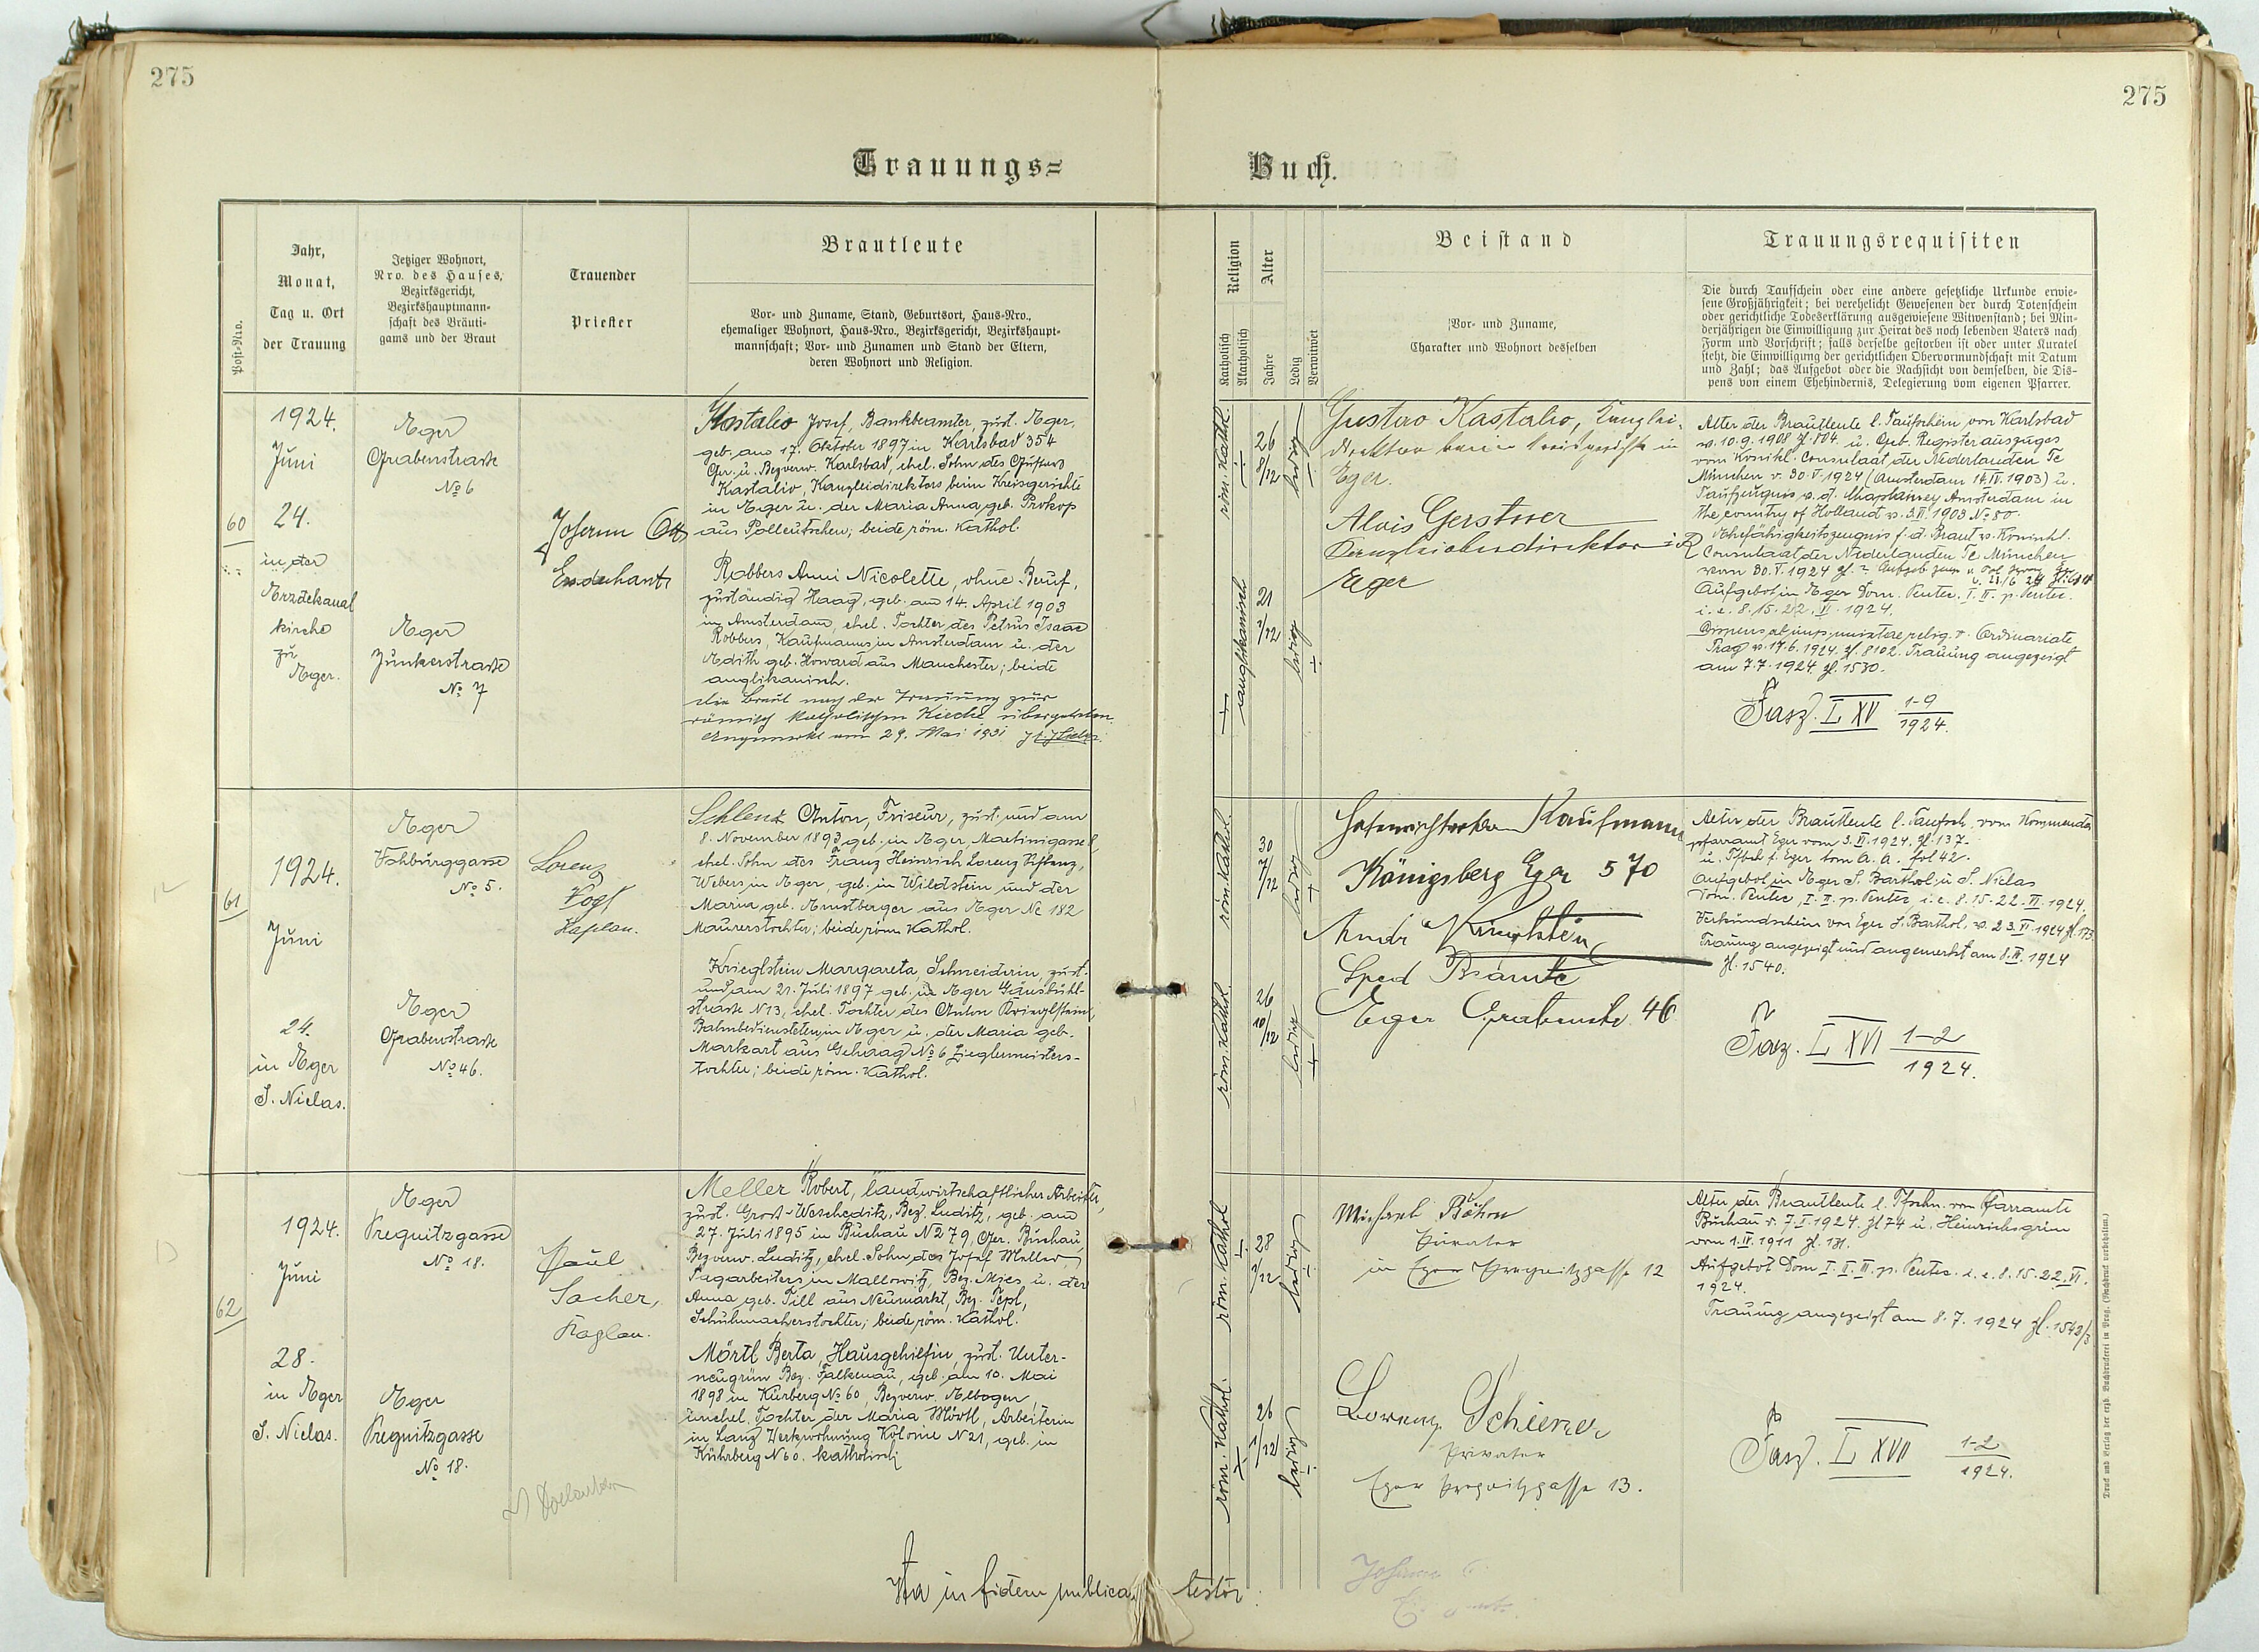 275
275
Trauungs=
Buch.
Post-Nro.
Jahr,
Monat,
Tag u. Ort
der Trauung
Jetziger Wohnort,
Nro. des Hauses,
Bezirksgericht,
Bezirkshauptmann-
schaft des Bräuti-
gams und der Braut
Trauender
Priester
Brautleute
Vor- und Zuname, Stand, Geburtsort, Haus-Nro.,
ehemaliger Wohnort, Haus-Nro., Bezirksgericht, Bezirkshaupt-
mannschaft; Vor- und Zunamen und Stand der Eltern,
deren Wohnort und Religion.
Religion
Katholisch
Akatholisch
Alter
Jahre
Ledig
Verwitwet
Beistand
Vor- und Zuname,
Charakter und Wohnort desselben
Trauungsrequisiten
Die durch Taufschein oder eine andere gesetzliche Urkunde erwie-
sene Großjährigkeit; bei verehelicht Gewesenen der durch Totenschein
oder gerichtliche Todeserklärung ausgewiesene Witwenstand; bei Min-
derjährigen die Einwilligung zur Heirat des noch lebenden Vaters nach
Form und Vorschrift; falls derselbe gestorben ist oder unter Kuratel
steht, die Einwilligung der gerichtlichen Obervormundschaft mit Datum
und Zahl; das Aufgebot oder die Nachsicht von demselben, die Dis-
pens von einem Ehehindernis, Delegierung vom eigenen Pfarrer.
60
1924.
Juni
24.
in der
Erzdekanal
kirche
zu
Eger.
Eger
Grabenstrasse
No 6
Eger
Junkerstrasse
No 7
Johann Ott
Erzdechant
Kastalio Josef, Bankbeamter, zust. Eger,
geb. am 17. Oktober 1897 in Karlsbad 354
Ger. u. Bezverw. Karlsbad, ehel. Sohn des Gustav
Kastalio, Kanzleidirektors beim Kreisgerichte
in Eger u. der Maria Anna, geb. Prokop
aus Polleutschen; beide röm. Kathol.
Robbers Anni Nicolette, ohne Beruf,
zuständig Haag, geb. am 14. April 1903
in Amsterdam, ehel. Tochter des Petrus Isaac
Robbers, Kaufmanns in Amsterdam u. der
Edith geb. Howard aus Manchester; beide
anglikanisch.
die Braut nach der Trauung zur
römisch katholischen Kirche übergetreten.
Angemerkt am 29. Mai 1931
röm. Kathol.
26
8/12
ledig
anglikanisch
21
2/12
ledig
Gustav Kastalio, Kanzlei-
direktor beim Kreisgerichte in
Eger.
Alois Gerstner
Kanzleioberdirektor i. R
Eger
Alter der Brautleute l. Taufschein von Karlsbad
v. 10.9.1908 Zl. 804. u. Geb. Register auszuges
vom Konikl. Consulaat der Nederlanden Te
München v. 30.V.1924 (Amsterdam 16.IV.1903) u.
Taufzeugnis v. d. Chaplaincy Amsterdam in
the country of Holland v. 3.VI.1903 No 80.
Ehefähigkeitszeugnis f. d. Braut v. Koninkl.
Consulaat der Nederlanden Te München
vom 30.V.1924
Aufgebot in Eger Dom. Pentec. I. II. p. Pentec.
i. e. 8. 15. 22. VI. 1924.
Dispens ab imp. mixtae relig. v. Ordinariate
Prag v. 17.6.1924 Zl. 8102. Trauung angezeigt
am 7.7.1924 Zl. 1530.
Fasz. L XV 1-9
1924.
61
1924.
Juni
24.
in Eger
S. Niclas.
Eger
Vohburggasse
No 5.
Eger
Grabenstrasse
No 46.
Lorenz
Vogl
Kaplan.
Schlenz Anton, Friseur, zust. und am
8. November 1893 geb. in Eger, Martinigasse 8
ehel. Sohn des Franz Heinrich Lorenz Schlenz,
Webers in Eger, geb. in Wildstein und der
Maria geb. Arnstberger aus Eger No 182
Maurerstochter; beide röm. Kathol.
Krieglstein Margareta, Schneiderin, zust.
und am 21. Juli 1897 geb. in Eger Gänsbühl-
strasse N 13, ehel. Tochter des Anton Krieglstein,
Bahnbediensteten in Eger u. der Maria geb.
Markart aus Gehaag No 6 Zieglermeisters-
tochter; beide röm. Kathol.
röm. Kathol.
30
7/12
ledig
röm. Kathol.
26
10/12
ledig
Kaufmann
Königsberg Eger 570
Andr Krieglstein
Sped Beamte
Eger Grabenstr. 46
Alter der Brautleute l. Taufsch. vom Kommenda
pfarramt Eger vom 3.II.1924. Zl. 137.
u. Tfbch f. Eger tom A. A. fol 42.
Aufgebot in Eger S. Barthol. u. S. Niclas
Dom. Pentec., I. II. p. Pentec. i. e. 8. 15. 22. VI. 1924.
Verkündschein von Eger S. Barthol. v. 23.VI.1924 Zl. 173.
Trauung angezeigt und angemerkt am 8.VII.1924
Zl. 1540.
Fasz. L XVI 1-2
1924.
62
1924.
Juni
28.
in Eger
S. Niclas.
Eger
Pregnitzgasse
No 18.
Eger
Pregnitzgasse
No 18.
Paul
Sacher,
Kaplan.
Meller Robert, landwirtschaftlicher Arbeiter,
zust. Gross-Wescheditz, Bez. Luditz, geb. am
27. Juli 1895 in Buchau N 279, Ger. Buchau,
Bezverw. Luditz, ehel. Sohn des Josef Meller,
Tagarbeiters in Mallowitz, Bez. Mies u. der
Anna, geb. Till aus Neumarkt, Bez. Tepl,
Schuhmacherstochter; beide röm. Kathol.
Mörtl Berta, Hausgehilfin, zust. Unter-
neugrün Bez. Falkenau, geb. am 10. Mai
1898 in Kürberg No 60, Bezverw. Elbogen
unehel. Tochter der Maria Mörtl, Arbeiterin
in Lanz Werkswohnung Kolonie N 21, geb. in
Kührberg N 60. katholisch
röm. Kathol
28
ledig
röm. Kathol.
26
1/12
ledig
Michael Böhm
Privater
in Eger Pregnitzgasse 12
Lorenz Schiener
Privater
Eger Pregnitzgasse 13.
Alter der Brautleute l. Tfschn. vom Pfarramte
Buchau v. 7.I.1924. Zl 74 u. Heinrichsgrün
vom 1.IV.1911 Zl. 131.
Aufgebot Dom I. II. III. p. Pentec. i. e. 8. 15. 22. VI.
1924.
Trauung angezeigt am 8.7.1924 Zl. 1542/3
Fasz. L XVII 1-2
1924.
Ita in fidem publicam testor:
Druck und Verlag der erzb. Buchdruckerei in Prag. (Nachdruck vorbehalten.)